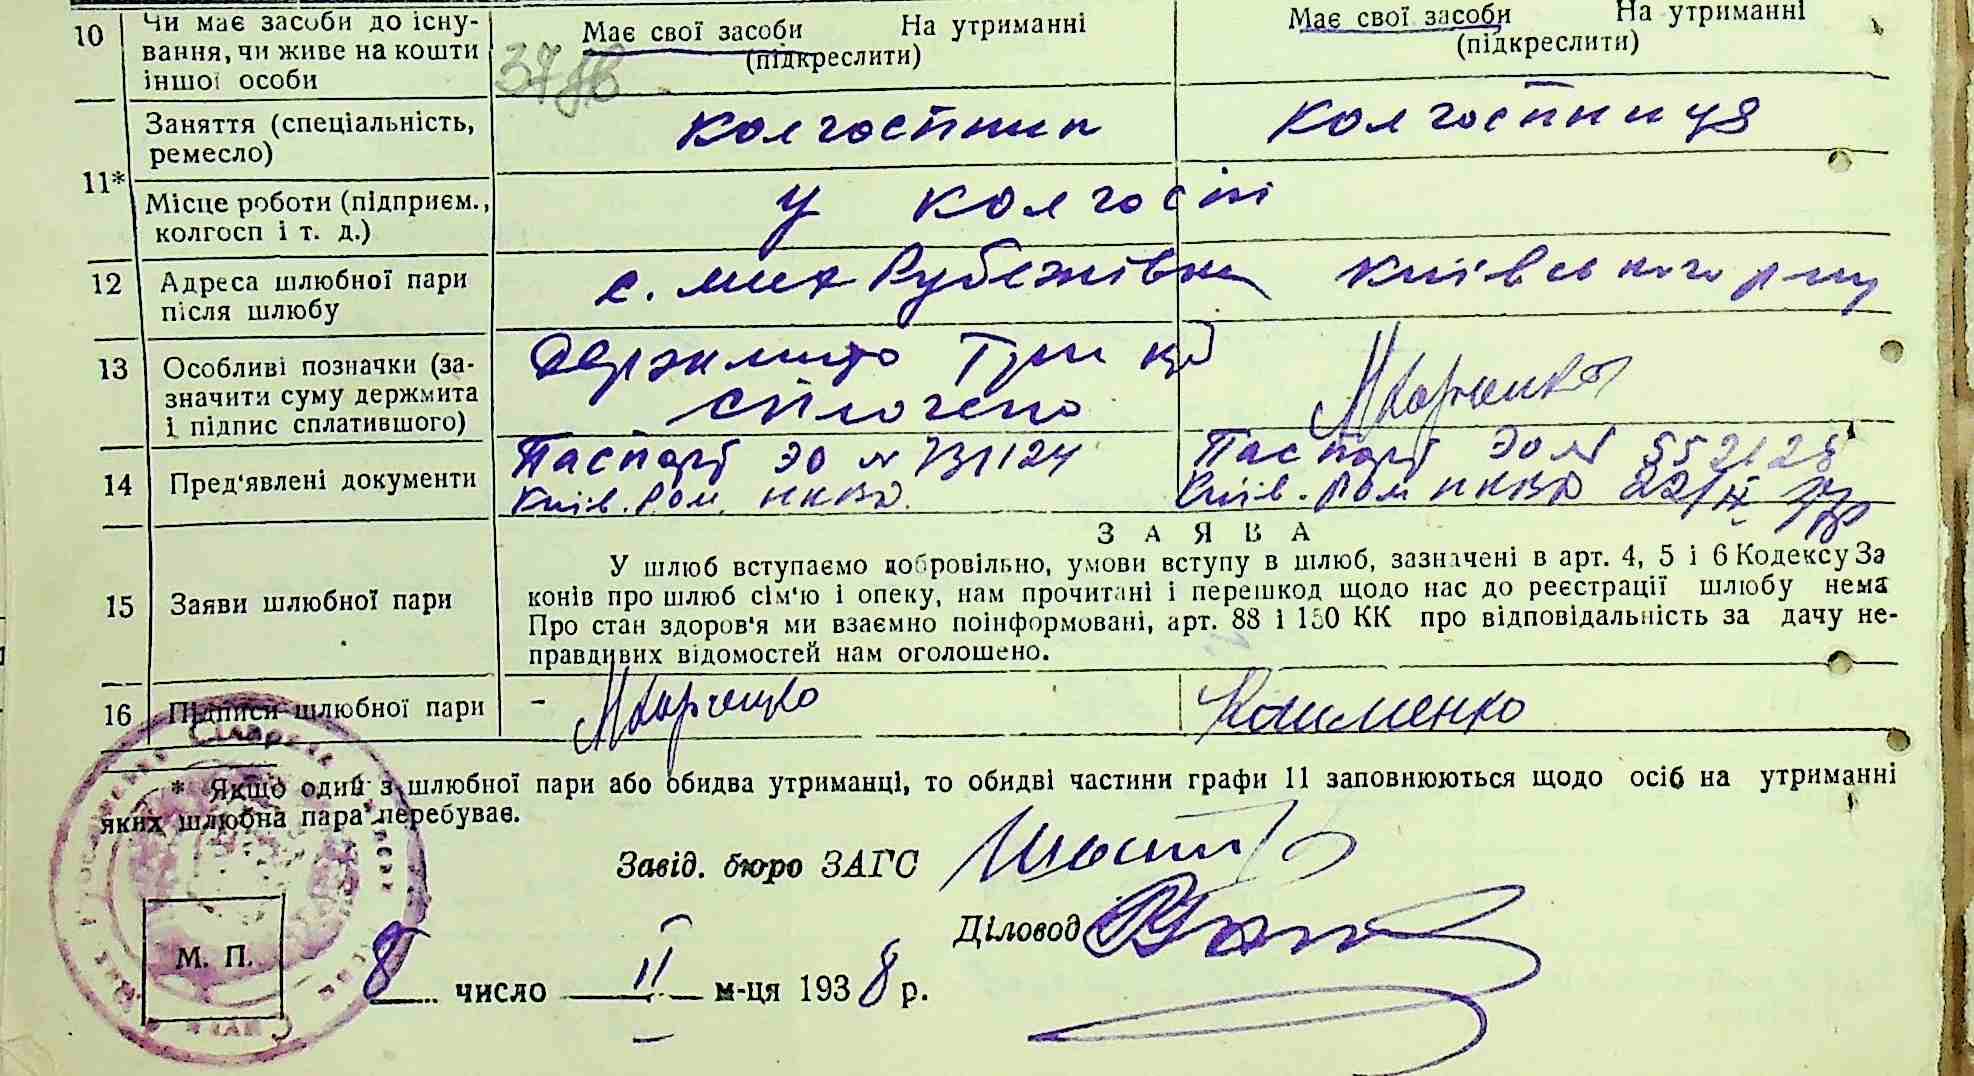 10 Чи має засоби до існу-
вання, чи живе на кошти
іншої особи
Має свої засоби На утриманні
(підкреслити)
Має свої засоби На утриманні
(підкреслити)
11* Заняття (спеціальність,
ремесло)
колгоспник
колгоспниця
Місце роботи (підприєм.,
колгосп і т. д.)
у колгоспі
12 Адреса шлюбної пари
після шлюбу
с. Мих Рубежівка Київського р-ну
13 Особливі позначки (за-
значити суму держмита
і підпис сплатившого)
Держмито три крб
сплочено
МКорченко
14 Пред'явлені документи
Паспорт ЭО № 731124
Київ. Ром. НКВД.
Паспорт ЭО № 552128
Київ. Ром НКВД 22/IV 37р
З А Я В А
15 Заяви шлюбної пари
У шлюб вступаємо добровільно, умови вступу в шлюб, зазначені в арт. 4, 5 і 6 Кодексу За
конів про шлюб сім'ю і опеку, нам прочитані і перешкод щодо нас до реєстрації шлюбу нема
Про стан здоров'я ми взаємно поінформовані, арт. 88 і 150 КК про відповідальність за дачу не-
правдивих відомостей нам оголошено.
16 Підписи шлюбної пари
МКорченко
* Якщо один з шлюбної пари або обидва утриманці, то обидві частини графи 11 заповнюються щодо осіб на утриманні
яких шлюбна пара перебуває.
Завід. бюро ЗАГС
Діловод
М. П.
8 число II м-ця 1938 р.